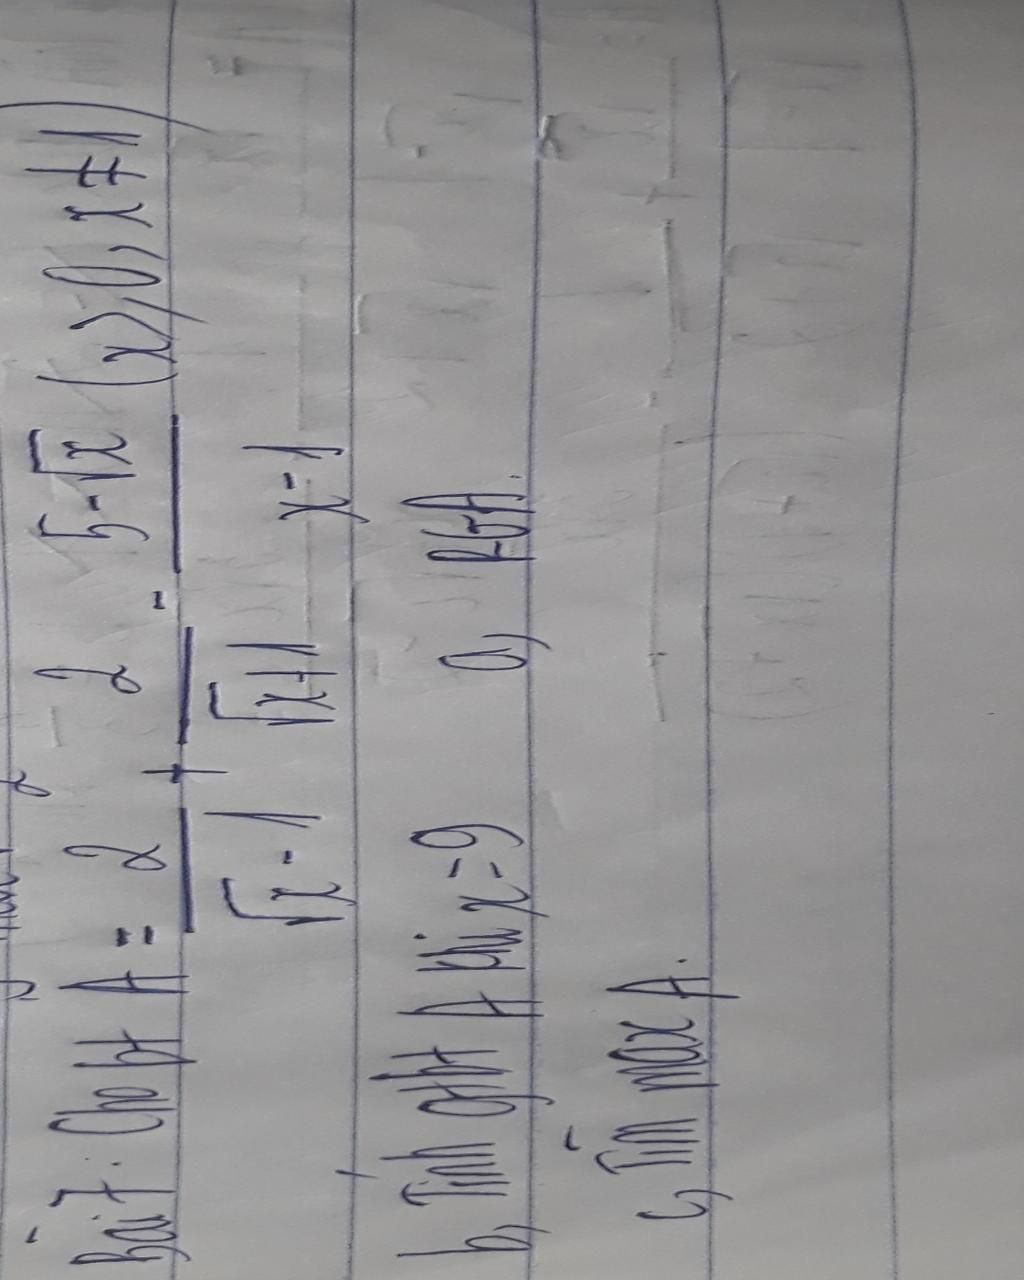 Bài 7. Cho bt A = 2/(√x - 1) + 2/(√x+1) - (5-√x)/(x-1) (x≥0, x≠1)
a, RGA.
b, Tính gtbt A khi x=9
c, Tìm max A.